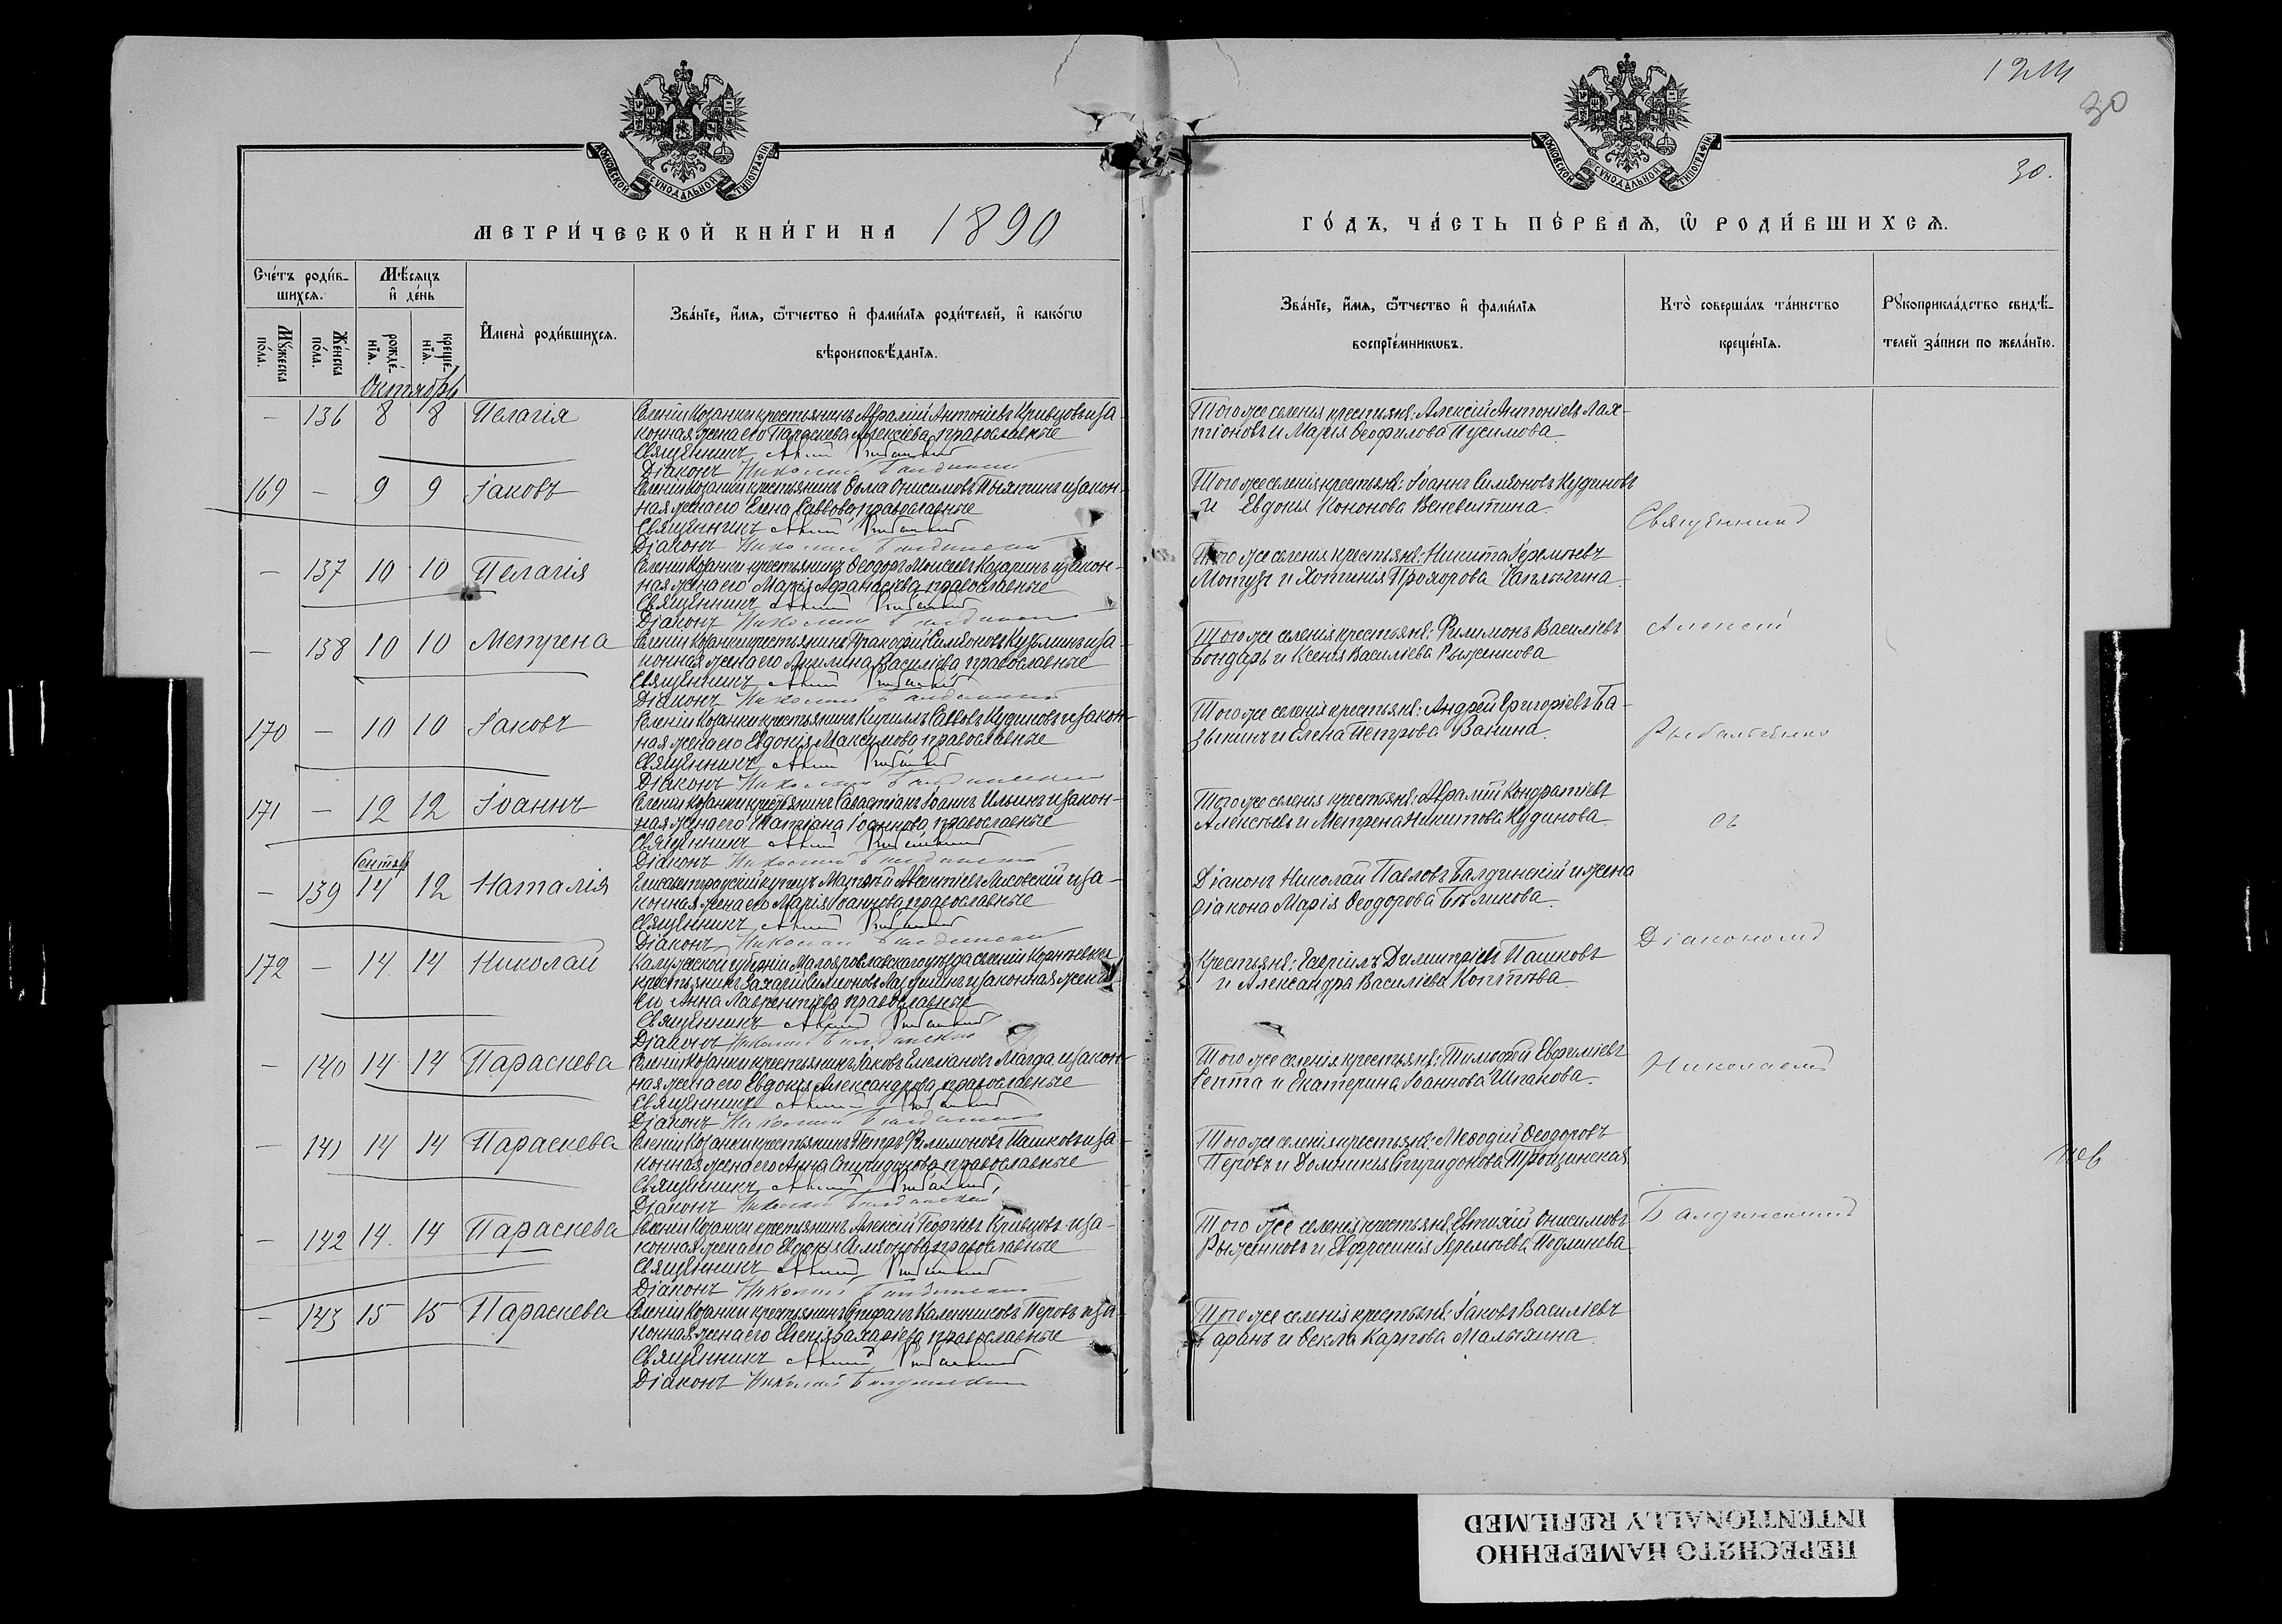 1214
30
30.
МОСКОВСКОЙ СѴНОДАЛЬНОЙ ТИПОГРАФІИ
МОСКОВСКОЙ СѴНОДАЛЬНОЙ ТИПОГРАФІИ
МЕТРИ́ЧЕСКОЙ КНИ́ГИ НА 1890
ГО́ДЪ, ЧА́СТЬ ПЕ́РВАѦ, Ѽ РОДИ́ВШИХСѦ.
Сче́тъ роди́в-
шихсѧ.
Мѣ́сѧцъ
и҆ де́нь
Мꙋ́жеска по́ла.
Же́нска по́ла.
рожде́нїѧ.
креще́нїѧ.
И҆мена̀ роди́вшихсѧ.
Зва́нїе, и҆́мѧ, ѻ҆́тчество и҆ фами́лїѧ роди́телей, и҆ како́гѡ
вѣроисповѣ́данїѧ.
Зва́нїе, и҆́мѧ, ѻ҆́тчество и҆ фами́лїѧ
воспрїе́мникѡвъ.
Кто̀ соверша́лъ та́инство
креще́нїѧ.
Рꙋкоприкла́дство свидѣ́-
телей за́писи по жела́нїю.
Октябрь
— 136 8 8 Пелагія Селенія Козанки крестьянинъ Авраамій Антоніевъ Кривцовъ и за-
конная жена его Параскева Алексіева, православные
Священникъ
Діаконъ Николай Балдинскій
Того же селенія крестьяне: Алексій Антоніевъ Лах-
тіоновъ и Марія Ѳеофилова Пусимова.
169 — 9 9 Іаковъ Селенія Козанки крестьянинъ Ѳома Онисимовъ Пыхтинъ и закон-
ная жена его Елена Саввова, православные
Священникъ
Діаконъ Николай Балдинскій
Того же селенія крестьяне: Іоаннъ Симеоновъ Кудиновъ
и Евдокія Кононова Веневитина.
— 137 10 10 Пелагія Селенія Козанки крестьянинъ Ѳеодоръ Моисеевъ Казаринъ и закон-
ная жена его Марія Аѳанасіева, православные
Священникъ
Діаконъ Николай Балдинскій
Того же селенія крестьяне: Никита Іереміевъ
Мотузъ и Хотинія Прохорова Чаплыгина.
— 138 10 10 Метрена Селенія Козанки крестьянинъ Прокофій Симеоновъ Кузьминъ и за-
конная жена его Акилина Василіева православные
Священникъ
Діаконъ Николай Балдинскій
Того же селенія крестьяне: Филимонъ Василіевъ
Бондарь и Ксенія Василіева Рыженкова
170 — 10 10 Іаковъ Селенія Козанки крестьянинъ Кириллъ Саввовъ Кудиновъ и закон-
ная жена его Евдокія Максимова, православные
Священникъ
Діаконъ Николай Балдинскій
Того же селенія крестьяне: Андрей Григоріевъ Ба-
зыкинъ и Елена Петрова Ванина.
171 — 12 12 Іоаннъ Селенія Козанки крестьянинъ Савастіанъ Іоаннъ Ильинъ и закон-
ная жена его Татіана Іоаннова, православные
Священникъ
Діаконъ Николай Балдинскій
Того же селенія крестьяне: Авраамій Кондратіевъ
Алексѣевъ и Метрена Никитова Кудинова.
Сентяб
— 139 14 12 Наталія Елисаветградскій купецъ Матѳей Авентіевъ Лисовскій и за-
конная жена его Марія Іоаннова, православные
Священникъ
Діаконъ Николай Балдинскій
Діаконъ Николай Павловъ Балдинскій и жена
діакона Марія Ѳеодорова Бѣликова.
172 — 14 14 Николай Калужской губерніи Малоярославскаго уѣзда селенія Корнѣевки
крестьянинъ Захарій Симеоновъ и законная жена
его Анна Лаврентіева православные
Священникъ
Діаконъ Николай Балдинскій
Крестьяне: Гавріилъ Димитріевъ Пашковъ
и Александра Василіева Коптѣва.
— 140 14 14 Параскева Селенія Козанки крестьянинъ Іаковъ Емеліановъ Магда и закон-
ная жена его Евдокія Александрова, православные
Священникъ
Діаконъ Николай Балдинскій
Того же селенія крестьяне: Тимоѳей Евфиміевъ
Септа и Екатерина Іоаннова Шпакова.
— 141 14 14 Параскева Селенія Козанки крестьянинъ Петръ Филимоновъ Пашковъ и за-
конная жена его Анна Спиридонова, православные
Священникъ
Діаконъ Николай Балдинскій
Того же селенія крестьяне: Меѳодій Ѳеодоровъ
Перовъ и Домникія Спиридонова Трощинская.
— 142 14 14 Параскева Селенія Козанки крестьянинъ Алексій Георгіевъ Кривцовъ и за-
конная жена его Евдокія Симеонова, православные
Священникъ
Діаконъ Николай Балдинскій
Того же селенія крестьяне: Евтихій Онисимовъ
Рыженковъ и Евфросинія Іереміева Подлинева
— 143 15 15 Параскева Селенія Козанки крестьянинъ Стефанъ Каленниковъ Перовъ и за-
конная жена его Евгенія Захаріева, православные
Священникъ
Діаконъ Николай Балдинскій
Того же селенія крестьяне: Іаковъ Василіевъ
Гаранъ и Ѳекла Карпова Малыхина.
Священникъ
Алексій
Рыбальченко
съ
Діакономъ
Николаемъ
Балдинскимъ
ПЕРЕСНЯТО НАМЕРЕННО
INTENTIONALLY REFILMED